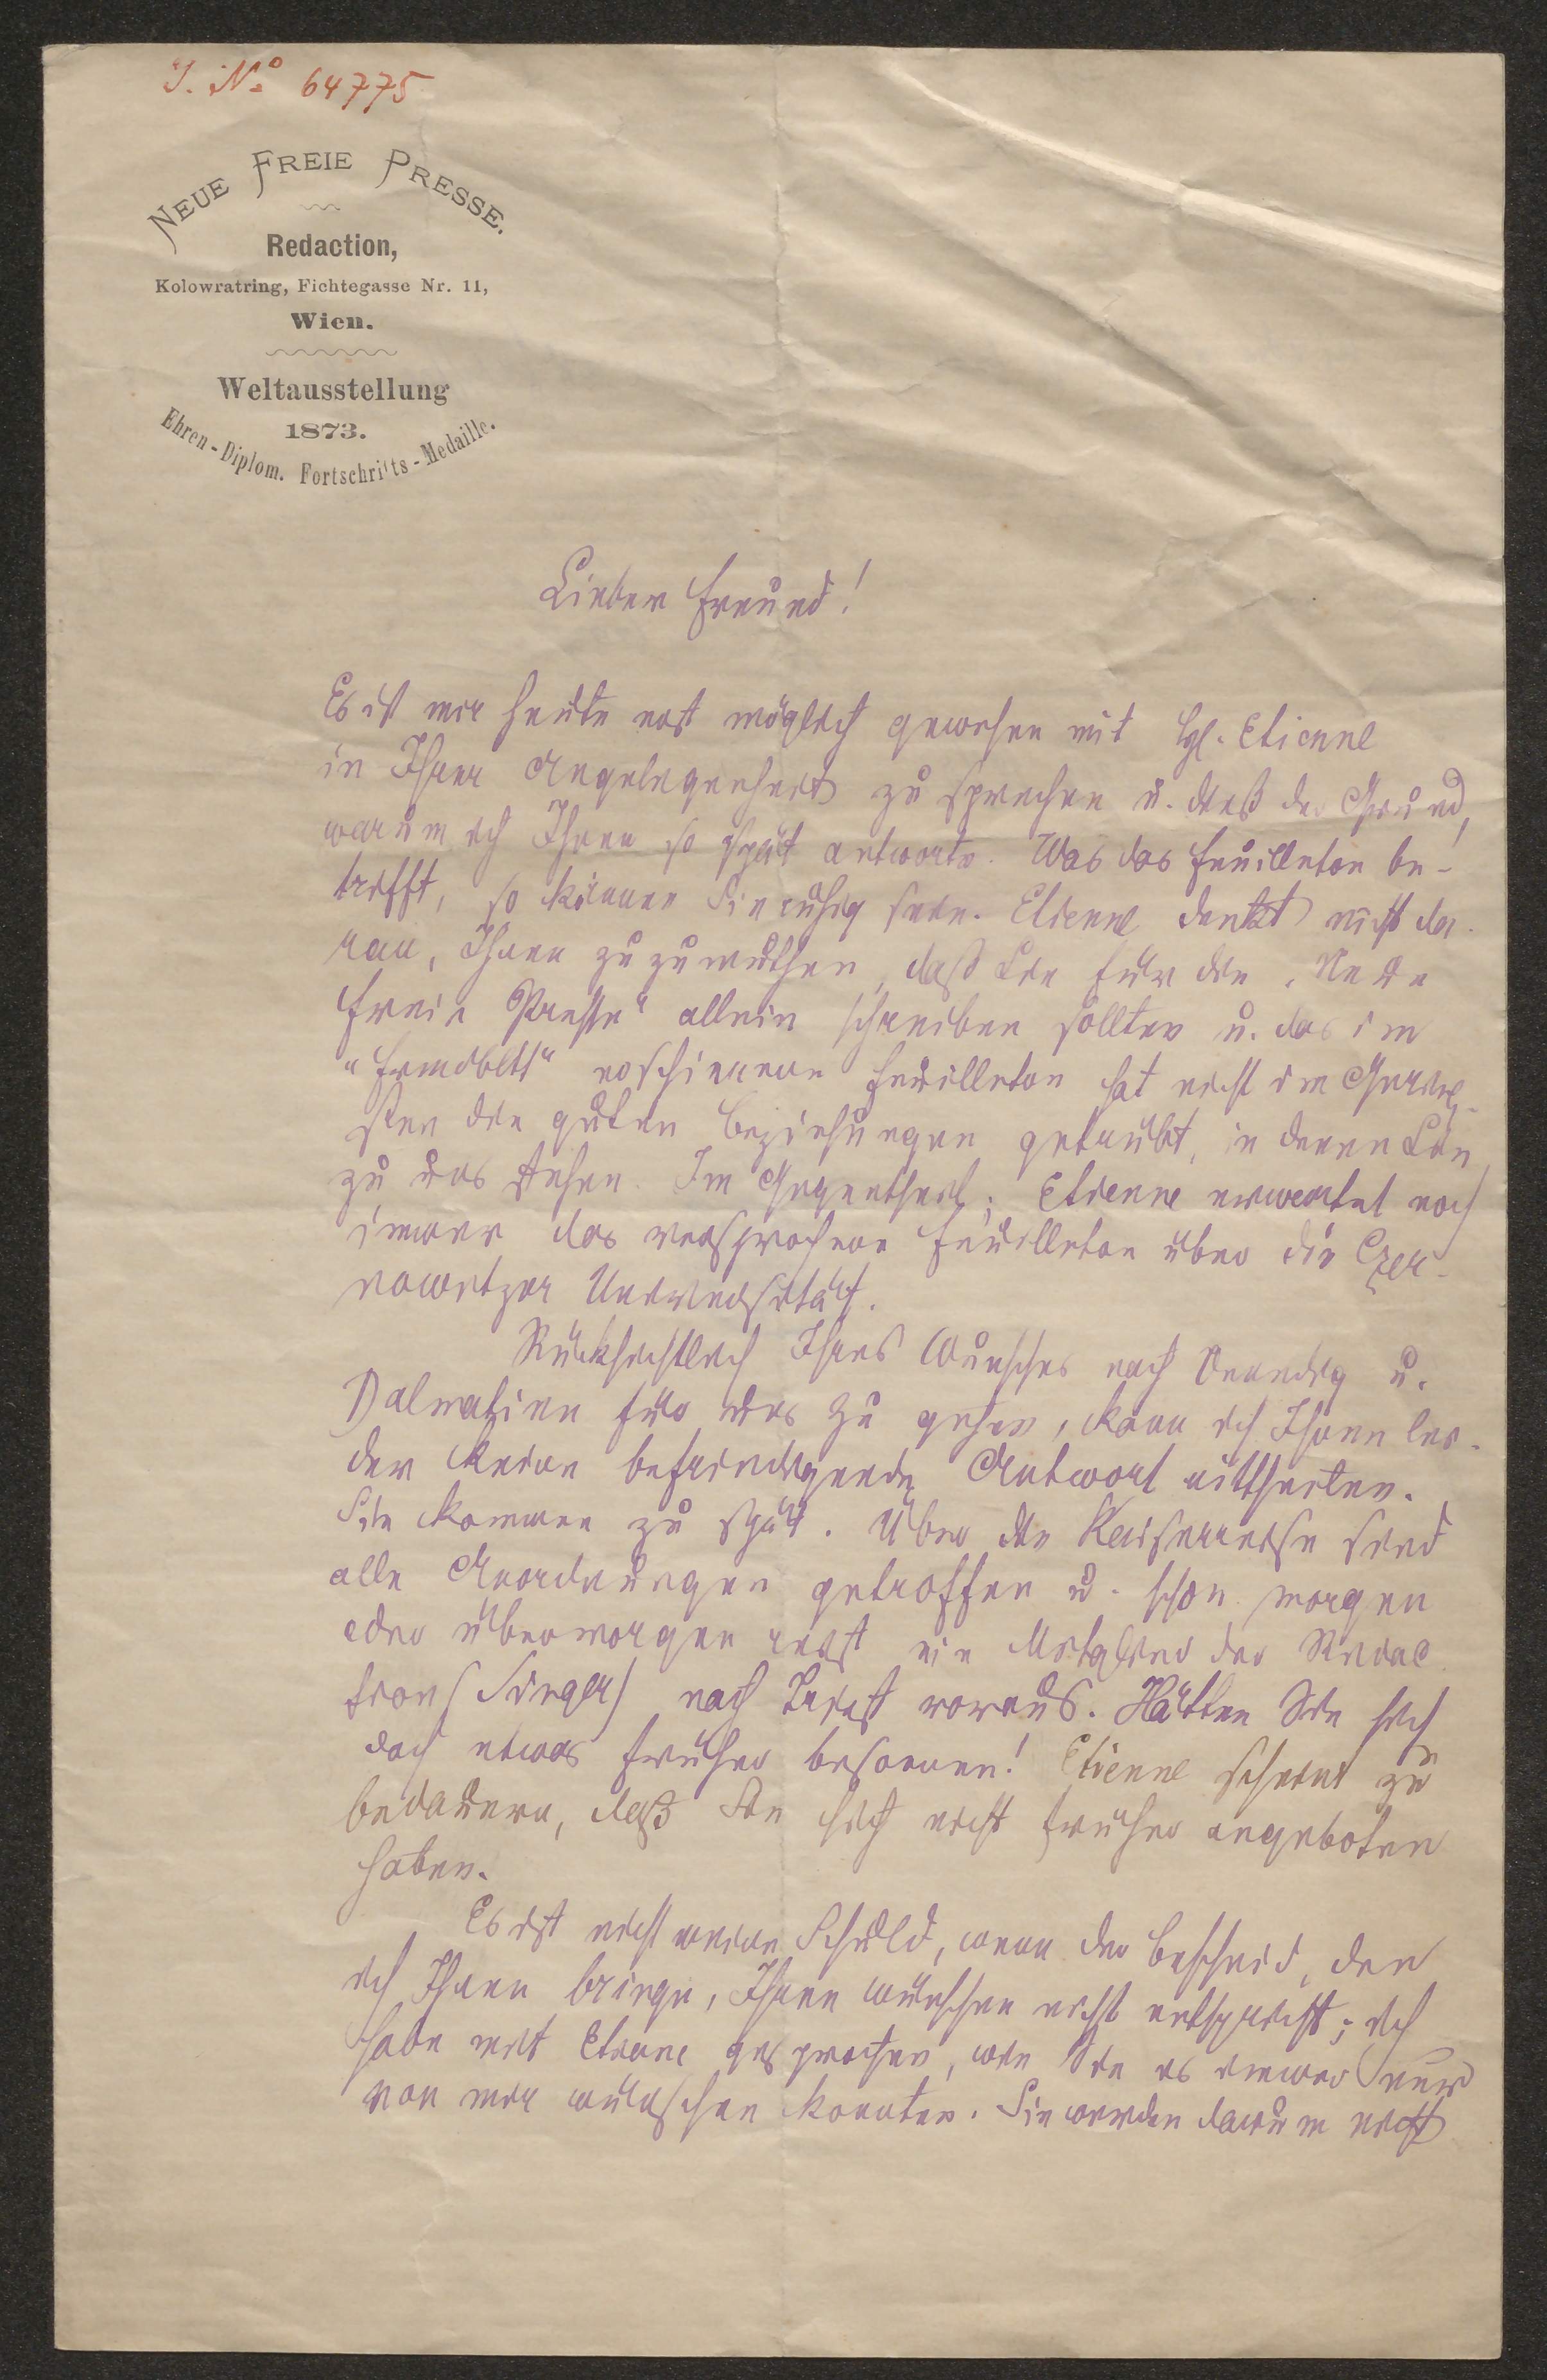 J. No 64775
NEUE FREIE PRESSE.
Redaction,
Kolowratring, Fichtegasse Nr. 11,
Wien.
Weltausstellung
1873.
Ehren-Diplom. Fortschritts-Medaille.
Lieber Freund!
Es ist mir heute erst möglich gewesen mit Etienne
in Ihrer Angelegenheit zu sprechen u. dieß der Grund,
warum ich Ihnen so spät antworte. Was das Feuilleton be-
trifft, so können Sie ruhig sein. Etienne denkt nicht da-
ran, Ihnen zuzumuthen, daß Sie für die „Neue
Freie Presse" allein schreiben sollten u. das im
"Frmdbltt" erschienene Feuilleton hat nicht im Gering-
sten die guten Beziehungen getrübt, in denen Sie
zu uns stehen. Im Gegentheil; Etienne erwartet noch
immer das versprochene Feuilleton über die Czer-
nowitzer Universität.
Rücksichtlich Ihres Wunsches nach Venedig u.
Dalmatien für uns zu gehen, kann ich Ihnen lei-
der keine befriedigende Antwort mittheilen.
Sie kommen zu spät. Über die Kaiserreise sind
alle Anordnungen getroffen u. schon morgen
oder übermorgen reist ein Mitglied der Redac-
tion (Singer) nach Triest voraus. Hätten Sie sich
doch etwas früher besonnen! Etienne scheint zu
bedauern, daß Sie sich nicht früher angeboten
haben.
Es ist nicht meine Schuld, wenn der Bescheid, den
ich Ihnen bringe, Ihren Wünschen nicht entspricht; ich
habe mit Etienne gesprochen, wie Sie es immer nur
von mir wünschen konnten. Sie werden darum nicht